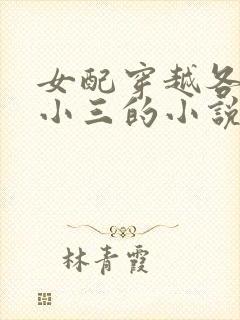 女配穿越各
小三的小説
林青霞